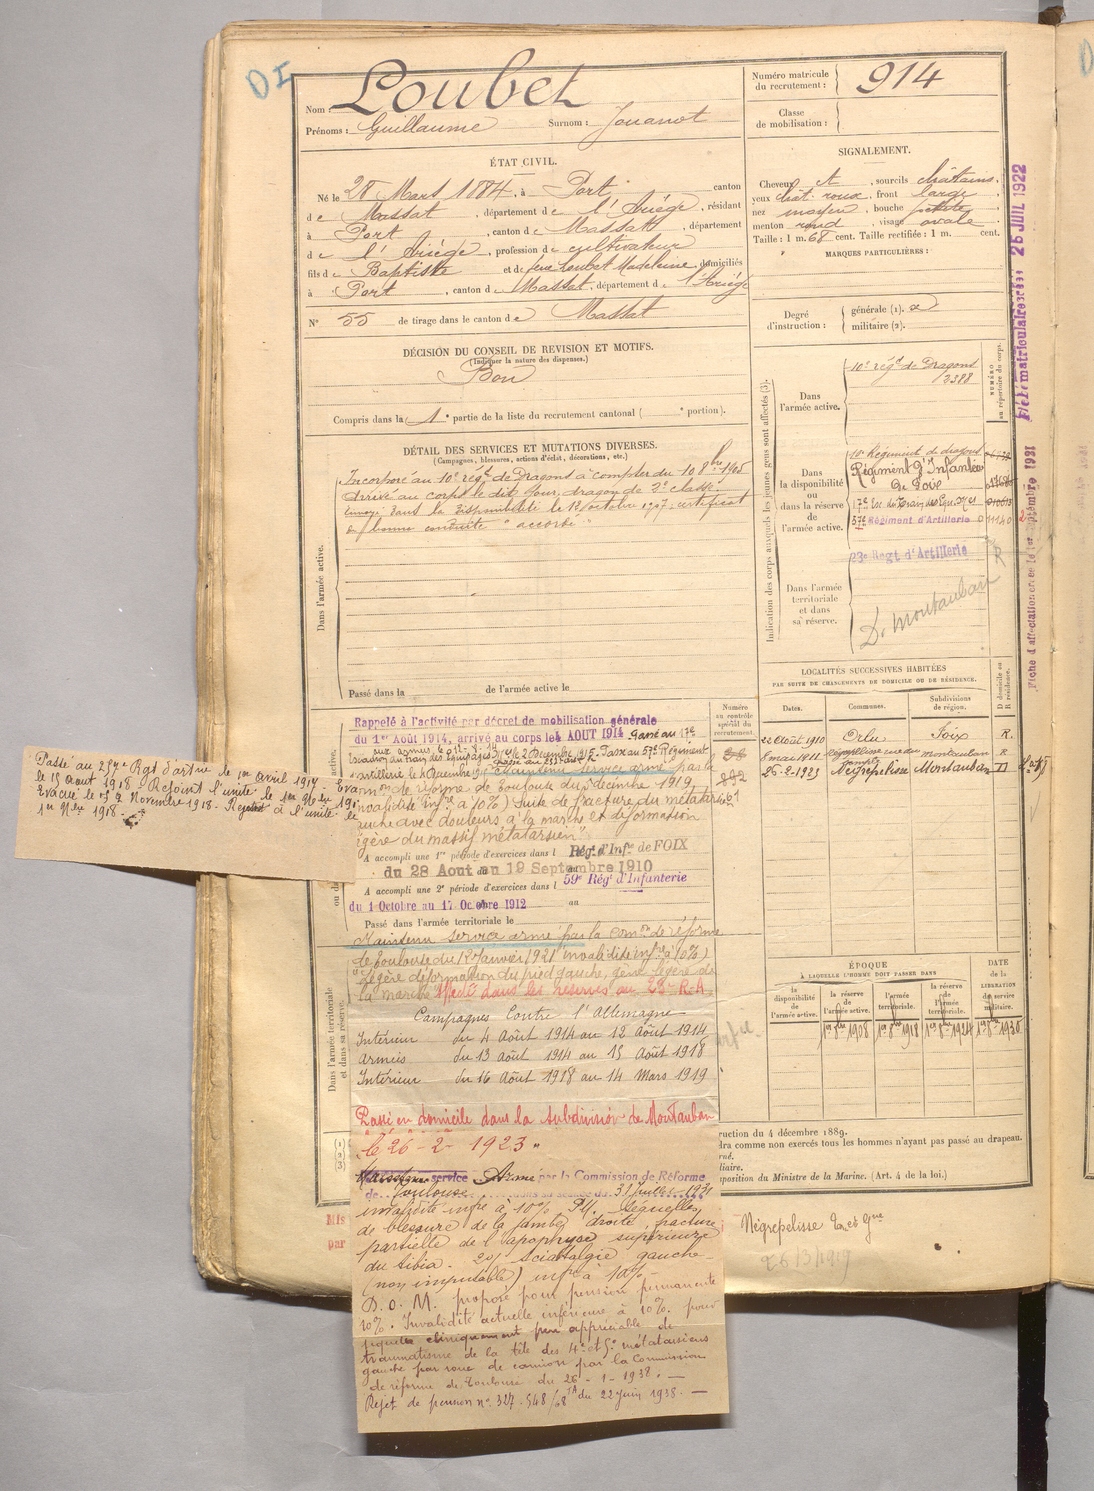 DI
Nom : Loubet
Prénoms : Guillaume Surnom : Jouanot
Numéro matricule du recrutement : 914
Classe de mobilisation :
ÉTAT CIVIL.
Né le 28 Mars 1884, à Port, canton
de Massat, département de l'Ariège, résidant
à Port, canton de Massat, département
de l'Ariège, profession de cultivateur
fils de Baptiste et de feue Loubet Madeleine, domiciliés
à Port, canton de Massat, département de l'Ariège
N° 55 de tirage dans le canton de Massat
SIGNALEMENT.
Cheveux ct, sourcils châtains,
yeux chât. roux, front large,
nez moyen, bouche petite,
menton rond, visage ovale
Taille : 1 m. 68 cent. Taille rectifiée : 1 m. cent.
MARQUES PARTICULIÈRES :
Degré d'instruction : générale (1).
militaire (2).
DÉCISION DU CONSEIL DE REVISION ET MOTIFS.
(Indiquer la nature des dispenses.)
Bon
Compris dans la 1e partie de la liste du recrutement cantonal ( e portion).
DÉTAIL DES SERVICES ET MUTATIONS DIVERSES.
(Campagnes, blessures, actions d'éclat, décorations, etc.)
Dans l'armée active.
Incorporé au 10e régt de Dragons à compter du 10 8bre 1905
arrivé au corps le dit jour, dragon de 2e classe.
Envoyé dans la disponibilité le 12 octobre 1907, certificat
de bonne conduite "accordé"
Passé dans la de l'armée active le
Indication des corps auxquels les jeunes gens sont affectés (3).
NUMÉRO au répertoire du corps.
Dans l'armée active.
10e régt de Dragons
2388
Dans la disponibilité ou dans la réserve de l'armée active.
10e Régiment de dragons
Régiment d'Infanterie
de Foix
17e Esc. du Train des Equ.
57e Régiment d'Artillerie 011140
23e Regt d'Artillerie
R
Dans l'armée territoriale et dans sa réserve.
D. Montauban
Fiche matriculaire créée 26 JUIL 1922
Fiche d'affectation créée le 1er septembre 1931
LOCALITÉS SUCCESSIVES HABITÉES
PAR SUITE DE CHANGEMENTS DE DOMICILE OU DE RÉSIDENCE.
Dates. Communes. Subdivisions de région. D domicile ou R résidence.
22 Août 1910 Orlu Foix R.
8 mai 1911 Négrepelisse Montauban R
26-2-1923 Négrepelisse Montauban D
Numéro au contrôle spécial du recrutement.
Rappelé à l'activité par décret de mobilisation générale
du 1er Août 1914, arrivé au corps le 4 AOUT 1914 Passé au 17e
aux armées le 12-8-14
escadron du train des Equipages le 2 Décembre 1915. Passé au 57e Régiment
Maintenu service armé par la
comon de réforme de Toulouse du 5 décembre 1919
invalidité infre à 10%) Suite de fracture du métatarse
gauche avec douleurs à la marche et déformation
légère du massif métatarsien"
Passé au 25me Rgt d'artie le 1er avril 1917 - Evacué
le 15 août 1918 - Rejoint l'unité le 1er 9bre 1918
Evacué le Novembre 1918 - Rejoint à l'unité le
1er 9bre 1918 -
A accompli une 1re période d'exercices dans l Rég. d'Infie de FOIX
du 28 Aout au 19 Septembre 1910
A accompli une 2e période d'exercices dans l 59e Rég. d'Infanterie
du 1 Octobre au 17 Octobre 1912 au
Passé dans l'armée territoriale le
Maintenu service armé par la comon de réforme
de Toulouse du 12 Janvier 1921 invalidité infre à 10%)
"Légère déformation du pied gauche, gêne légère de
la marche" Affecté dans les réserves au 23e R.A.
Dans l'armée territoriale et dans sa réserve.
Campagnes Contre l'Allemagne
Intérieur du 4 Août 1914 au 12 Août 1914
Armées du 13 Août 1914 au 15 Août 1918
Intérieur du 16 Août 1918 au 14 Mars 1919
Passé en domicile dans la subdivision de Montauban
le 26-2-1923"
Maintenu service Armé par la Commission de Réforme
de Toulouse dans sa séance du 31 Juillet 1931
invalidité infre à 10% P.I. Séquelles
de blessure de la jambe droite, fracture
partielle de l'apophyse supérieure
du tibia. 2°) sciatalgie gauche -
(non imputable) infre à 10% -
D.O.M. proposé pour pension permanente
10%. Invalidité actuelle inférieure à 10%. pour
séquelles cliniquement peu appréciable de
traumatisme de la tête des 4e et 5e métatarsiens
gauche par roue de camion par la Commission
de réforme de Toulouse du 26-1-1938. -
Rejet de pension n° 327.548/68 du 22 juin 1938. -
ÉPOQUE
À LAQUELLE L'HOMME DOIT PASSER DANS
la disponibilité de l'armée active. la réserve de l'armée active. l'armée territoriale. la réserve de l'armée territoriale. DATE de la LIBÉRATION du service militaire.
1er 8bre 1908 1er 8bre 1918 1er 8bre 1924 1er 8bre 1930
ruction du 4 décembre 1889.
dra comme non exercés tous les hommes n'ayant pas passé au drapeau.
rné.
iliaire.
sposition du Ministre de la Marine. (Art. 4 de la loi.)
Mis
par
Négrepelisse
26/3/1919